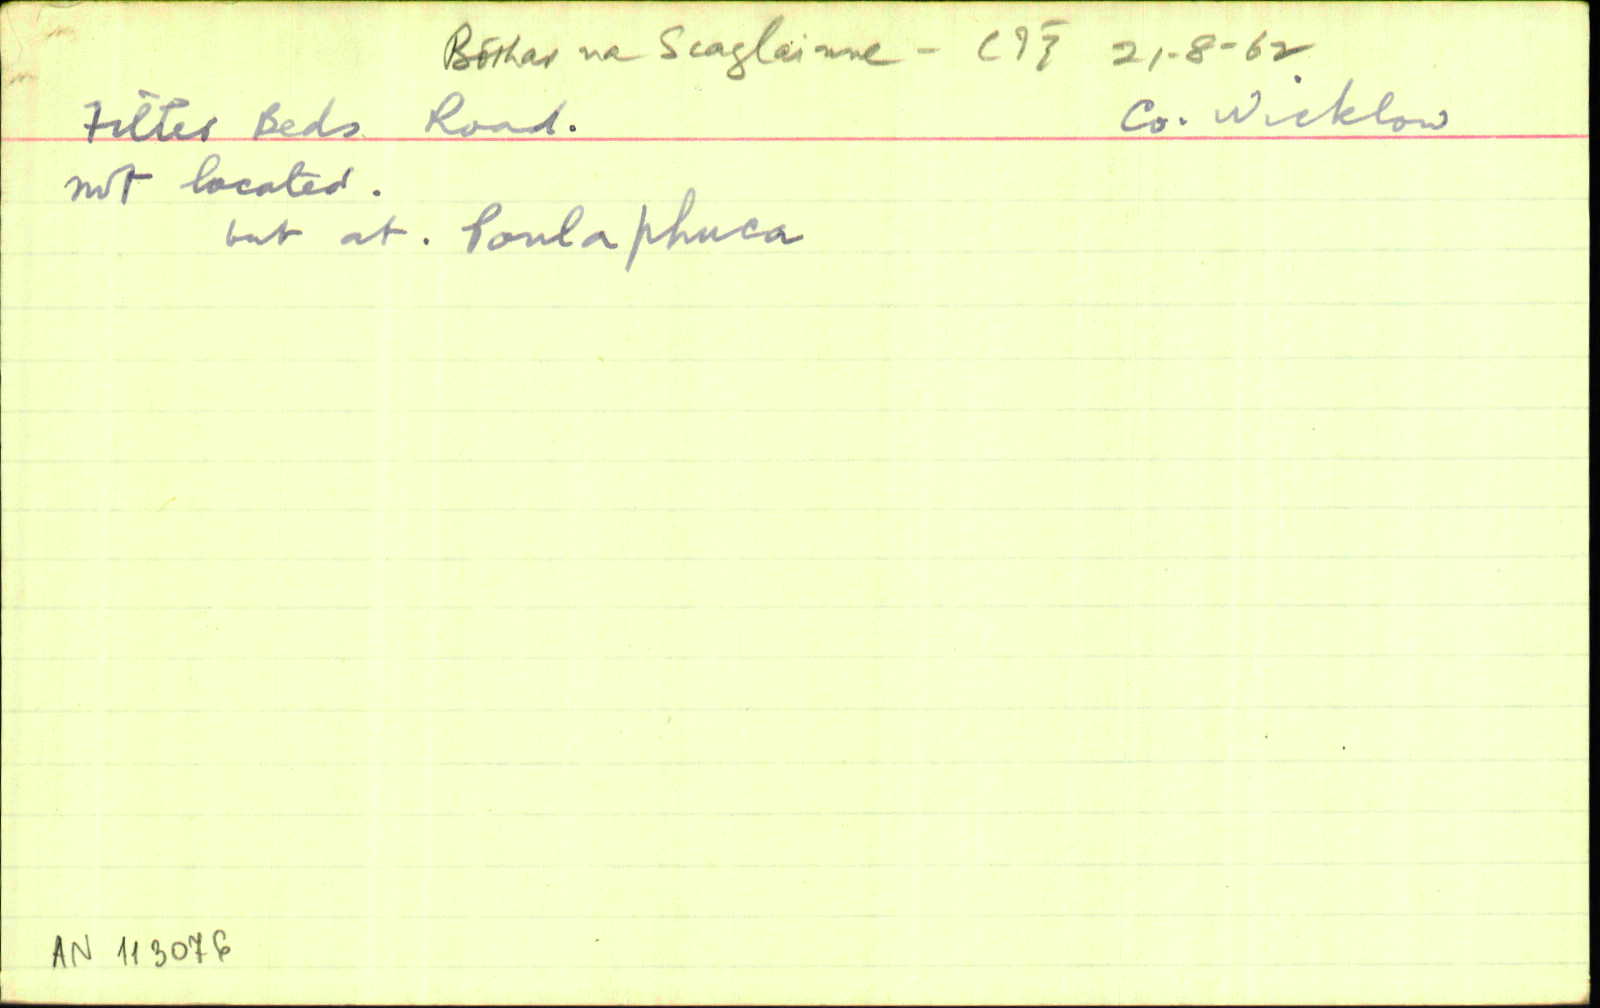 Bóthar na Scaglainne - 21-8-62
Filter Beds Road. Co. Wicklow
not located.
but at. Poulaphuca
AN 113076